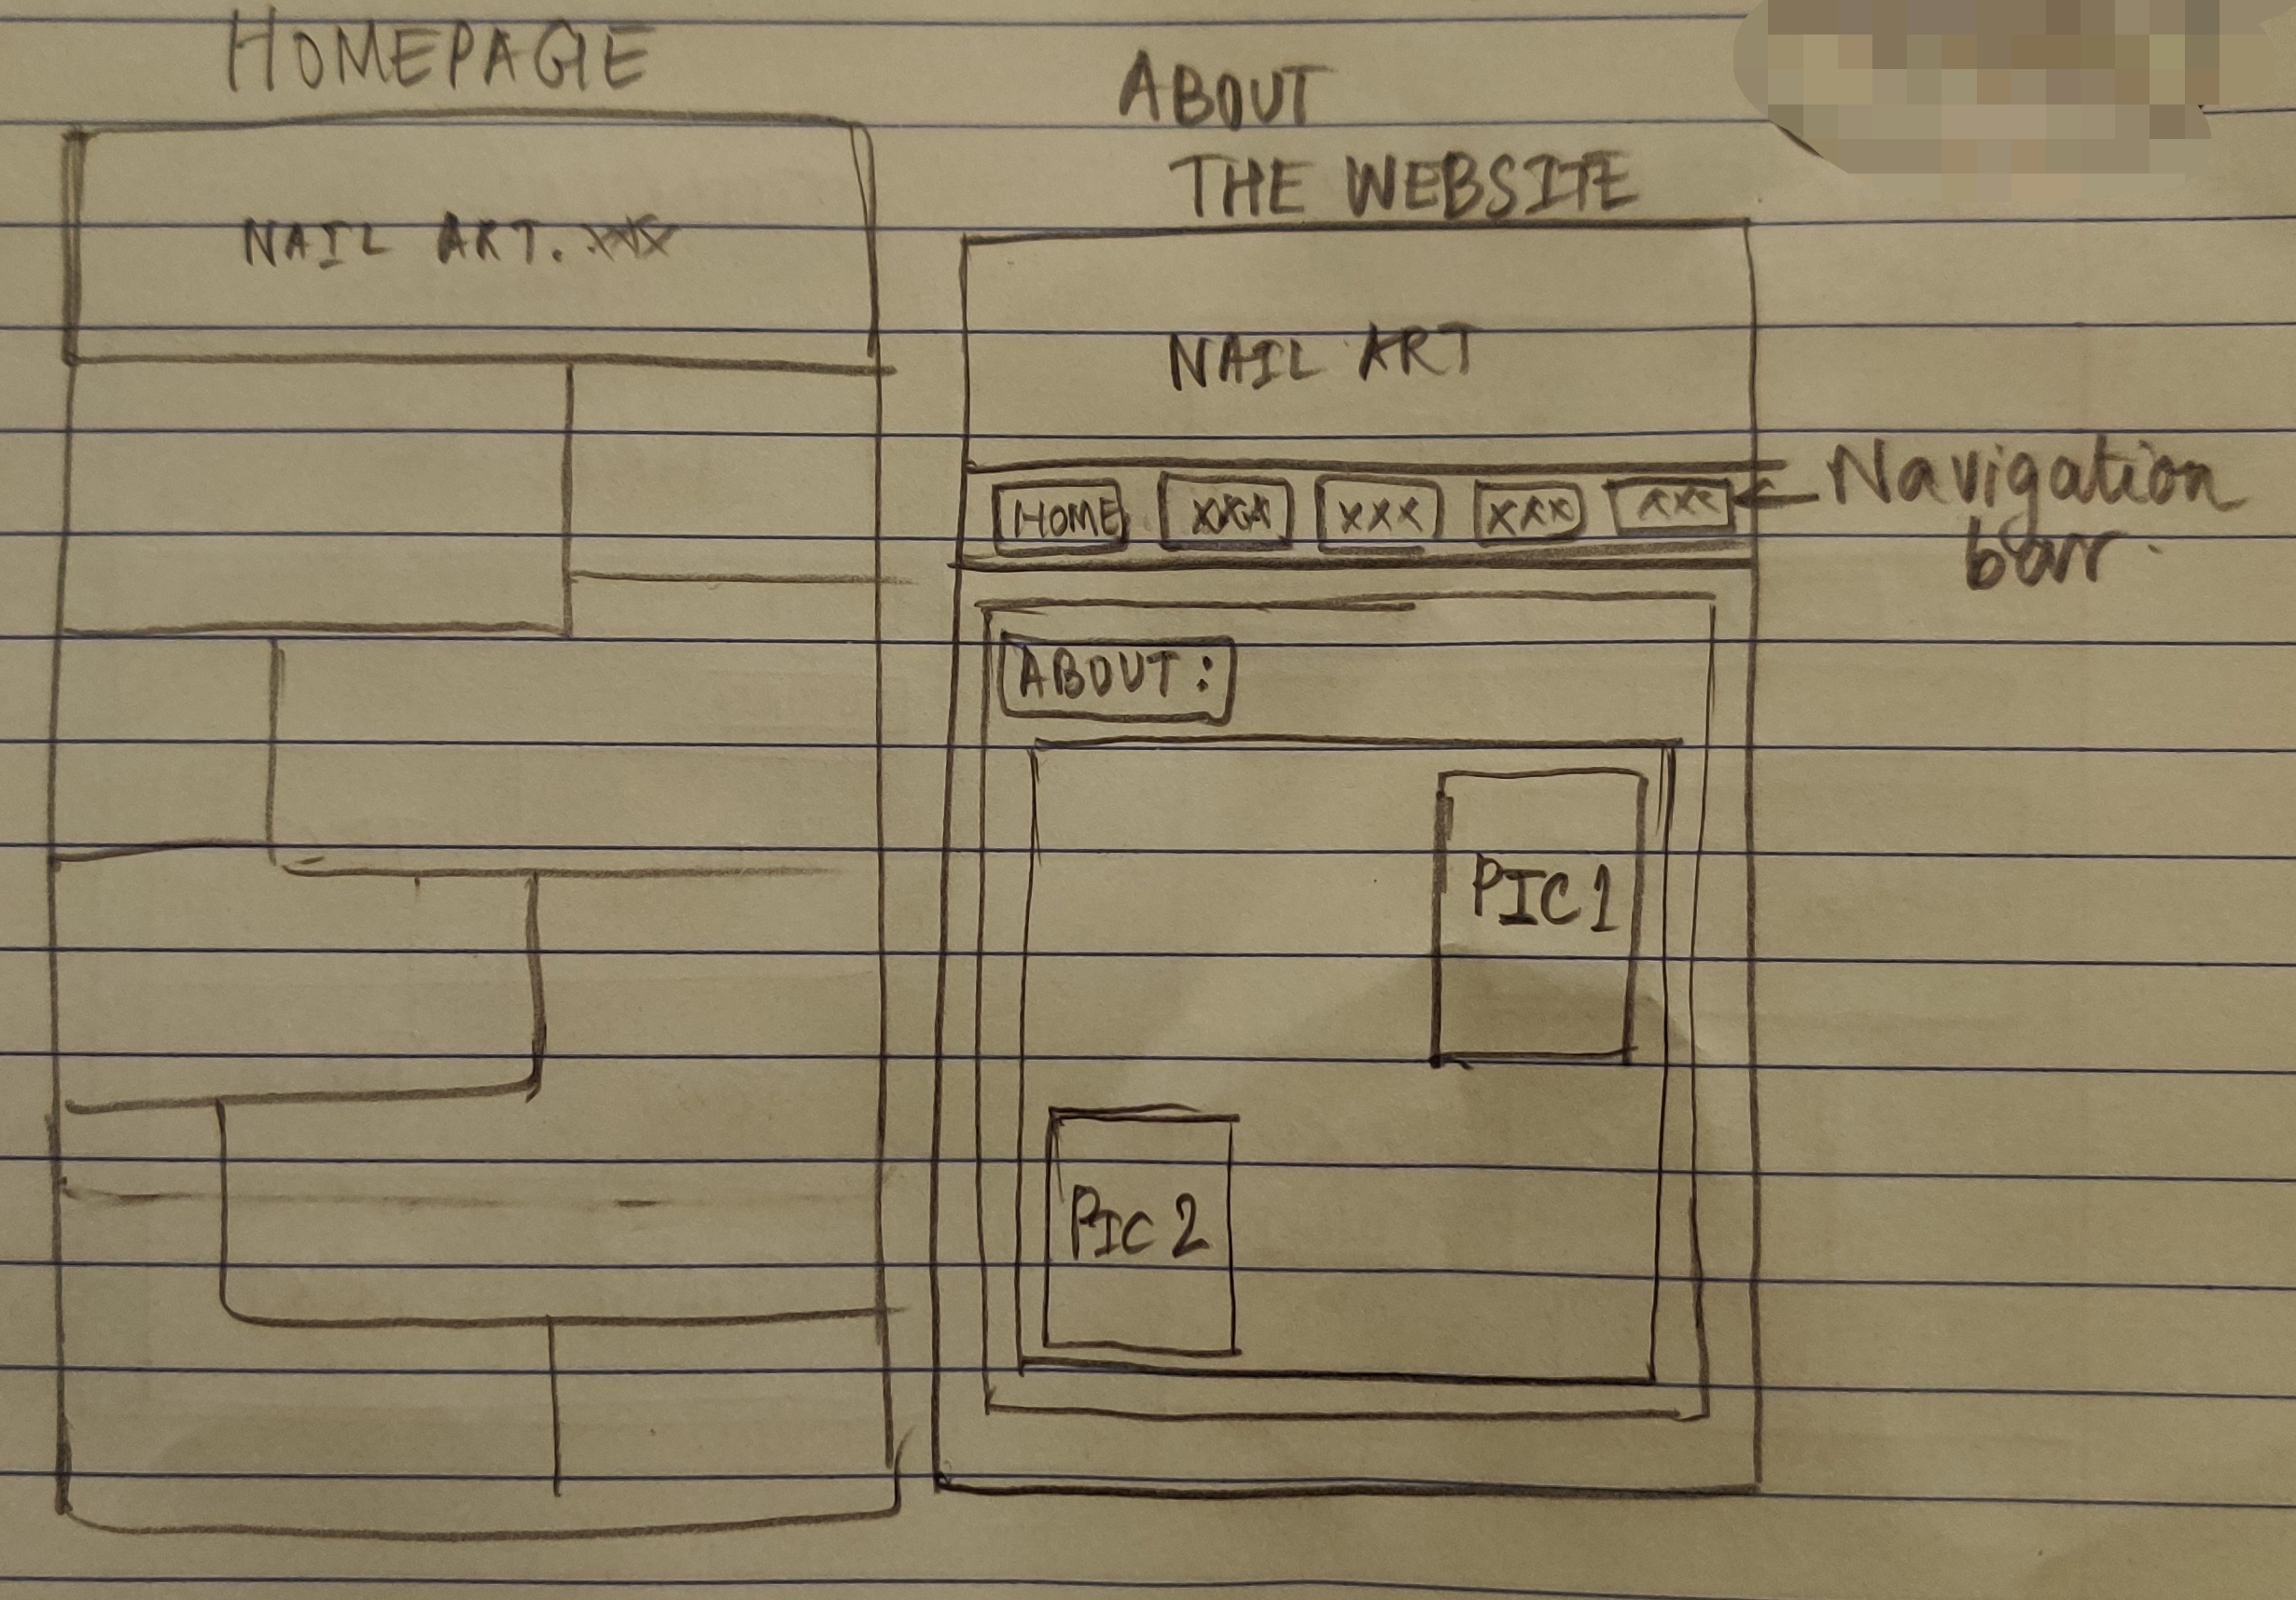 HOMEPAGE
NAIL ART. XXX
ABOUT
THE WEBSITE
NAIL ART
HOME XXXX XXX XXX XXX
Navigation
bar.
ABOUT:
PIC 1
PIC 2